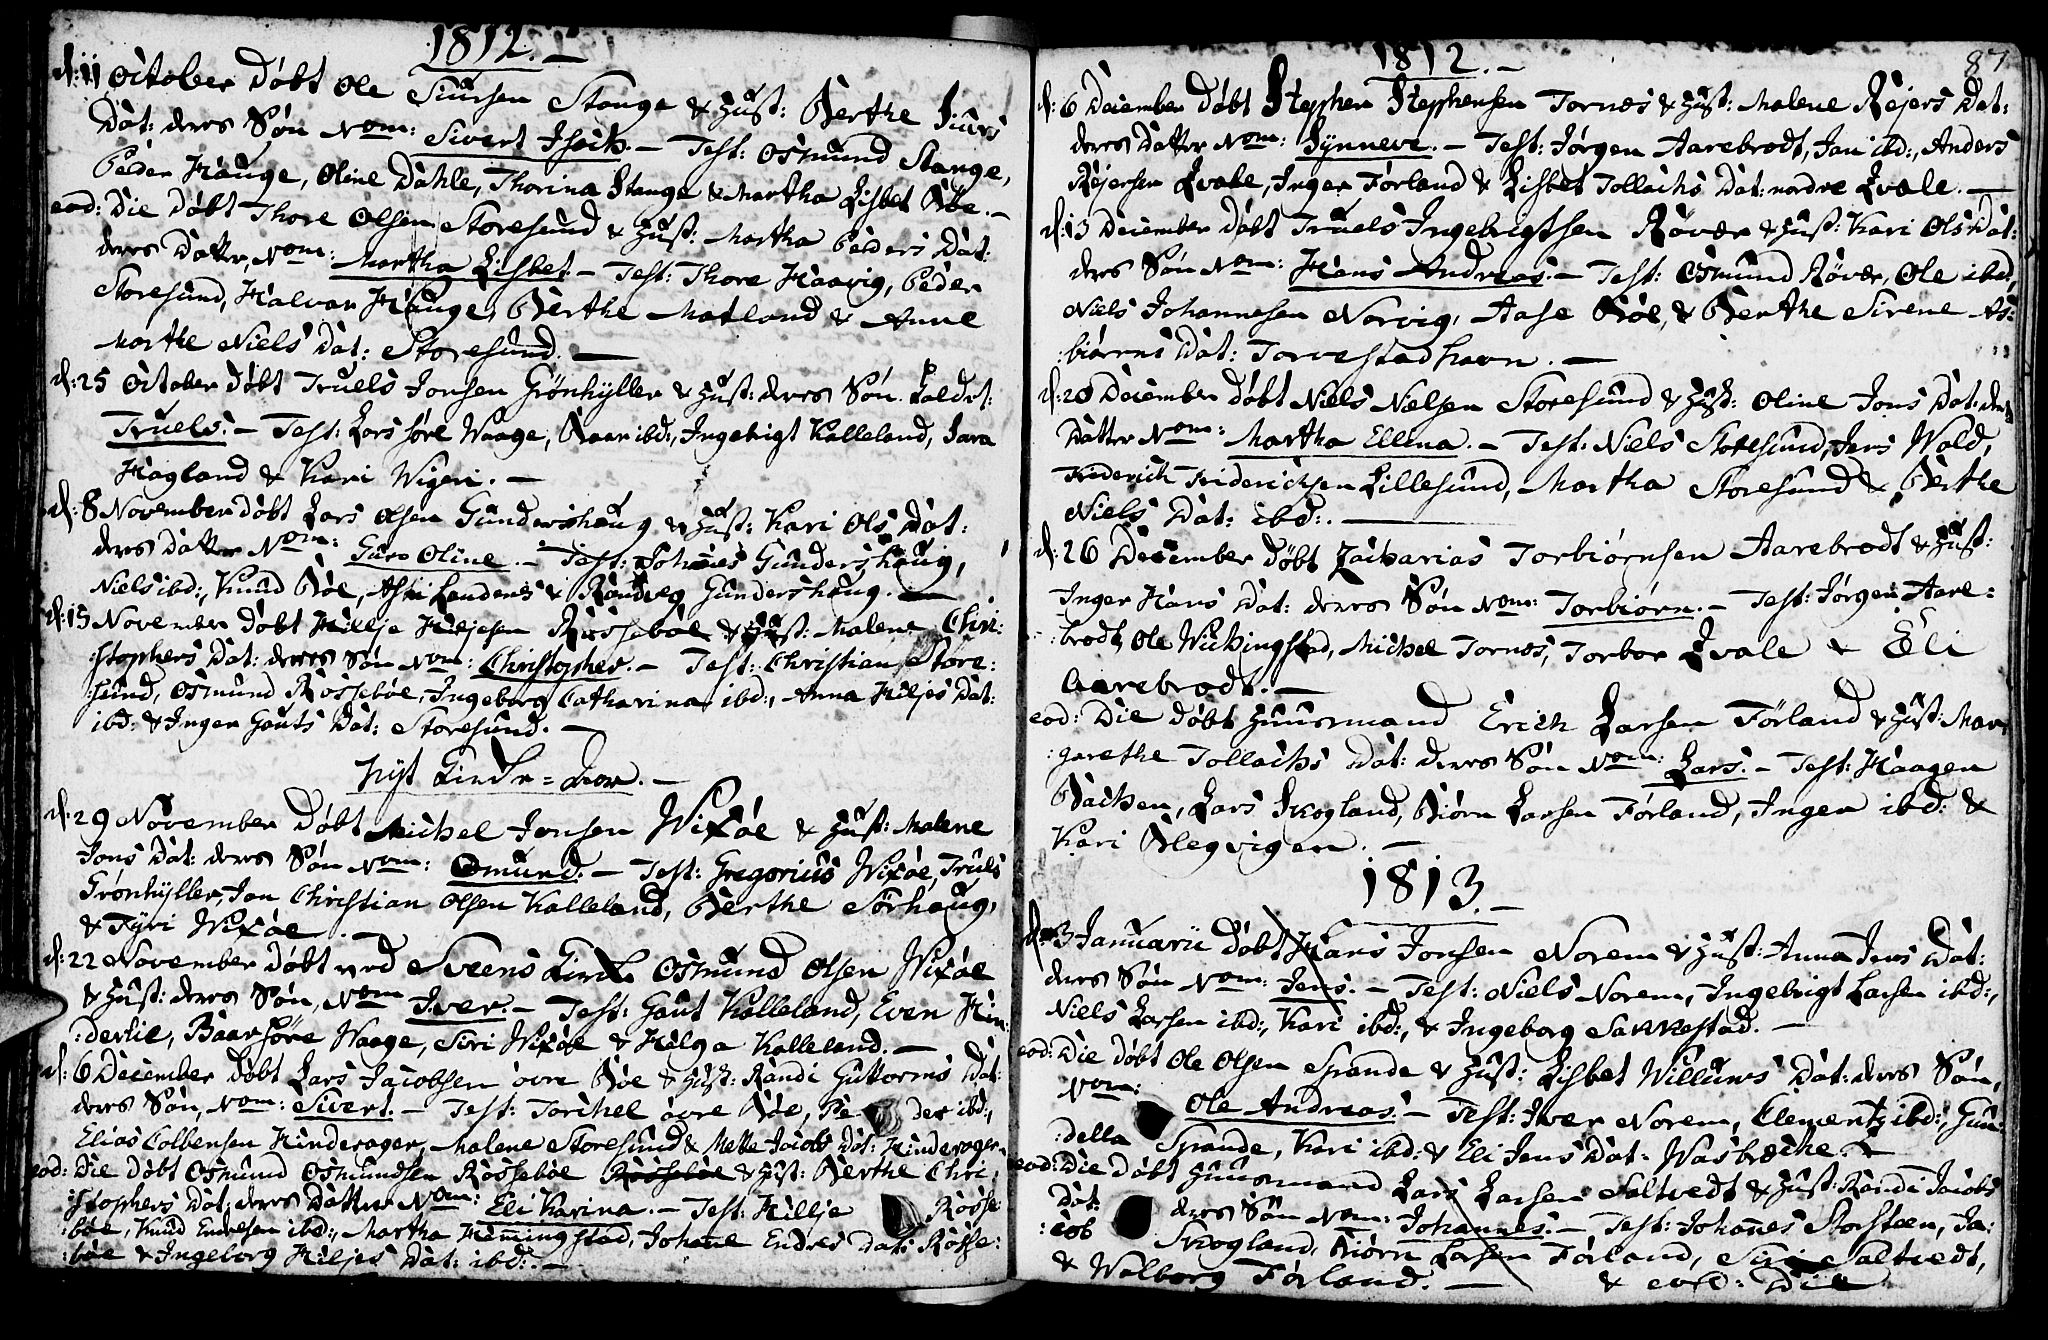 1812. –
d: 11 October döbt Ole Siursen Stange & Hust: Berthe Siurs
Dat: deres Sön Nom: Sivert Isach. – Test: Osmund Stange,
Peder Hauge, Oline Dahle, Thorina Stange & Martha Lisbet Böe. –
eod: Die döbt Thore Olsen Storesund & Hust: Martha Peders Dat:
deres Datter, Nom: Martha Lisbet. – Test: Thore Haavig, Peder
Storesund, Halvar Hauge, Berthe Matland & Anne
Marthe Niels Dat: Storesund. –
d: 25 October döbt Truels Jonsen Grönhyller & Hust: deres Sön kaldet:
Truels. – Test: Lars söre Waage, Baar ibd:, Ingebrigt Kalleland, Sara
Hagland & Kari Wigeri. –
d: 8 November döbt Lars Olsen Gundershaug & Hust: Kari Ols Dat:
deres Datter Nom: Guro Oline. – Test: Johanes Gundershaug,
Niels ibd:, Knud Böe, Asri Landenes & Randveg Gundershaug. –
d: 15 November döbt Hillje Hiljesen Rosseböe & Hust: Malene Chri:
:stophers Dat: deres Sön Nom: Christopher. – Test: Christian Store:
:sund, Osmund Rosseböe, Ingeborg Catharina ibd:, Anna Hiljes Dat:
ibd: & Inger Gauts Dat: Storesund. –
Nyt Kirke-Aar. –
d: 29 November döbt Michel Jonsen Wixöe & Hust: Malene
Jons Dat: deres Sön Nom: Omund. – Test: Gregorius Wixöe, Truls
Grönhyller, Jan Christian Olsen Kalleland, Berthe Sörhaug,
& Tyri Wixöe. –
d: 22 November döbt ved Sveens Kirke Osmund Olsen Wixöe
& Hust: deres Sön, Nom Iver. – Test: Gaut Kalleland, Even Hin:
:derlie, Baar söre Waage, Siri Wixöe & Helga Kalleland. –
d: 6 December döbt Lars Jacobsen övre Böe & Hust: Randi Guttorms Dat:
deres Sön, Nom: Sivert. – Test: Torchel övre Böe, Pe der ibd:,
Elias Colbensen Hinderager, Malene Storesund & Mette Jacobs Dat: Hinderager.
eod: Die döbt Osmund Osmundsen Rosseböe & Hust: Berthe Chri:
:stophers Dat: deres Datter Nom: Eli Karina. – Test: Hillje Rosse
böe, Knud Endresen ibd:, Martha Hemingstad, Johane Endres Dat: Rosse:
:böe & Ingeborg Hiljes Dat: ibd:. –
1812. –
87
d: 6 December döbt Stephen Stephensen Tornes & Hust: Malene Rejers Dat:
deres Datter Nom: Synnevi. – Test: Jörgen Aarebrodt, Jan ibd:, Anders
Rejersen Qvale, Inger Förland & Lisbet Tollachs Dat: nordre Qvale. –
d: 13 December döbt Truels Ingebrigtsen Rövær & Hust: Kari Ols Dat:
deres Sön Nom: Hans Andreas. – Test: Osmund Rövær, Ole ibd,
Niels Johannesen Norvig, Aase Böe, & Berthe Sirene As:
:biörns Dat: Torvestadhavn. –
d: 20 December döbt Niels Nielsen Storesund & Hust: Oline Jons Dat: deres
Datter Nom: Martha Ellena. – Test: Niels Storesund, Jens Wold,
Friderich Friderichsen Lillesund, Martha Storesund & Berthe
Niels Dat: ibd:. –
d: 26 December döbt Zacharias Torbiörnsen Aarebrodt & Hust:
Inger Hans Dat: deres Sön Nom: Torbiörn. – Test: Jörgen Aare=
:brodt, Ole Wichingstad, Michel Tornes, Torbor Qvale & Eli
Aarebrodt. –
eod: Die döbt Huusmand Erich Larsen Förland & Hust: Mar
:garethe Tollachs Dat: deres Sön Nom: Lars. – Test: Haagen
Bachen, Lars Skogland, Biörn Larsen Förland, Inger ibd: &
Kari Blegvigen. –
1813. –
d: 3 Januarii döbt Lars Jonsen Norem & Hust: Anna Jens Dat:
deres Sön Nom: Jens. – Test: Niels Norem, Ingebrigt Larsen ibd:,
Niels Larsen ibd:, Kari ibd:, & Ingeborg Sakkestad. –
eod: Die döbt Ole Olsen Spande & Hust: Lisbet Willums Dat: deres Sön,
Nom: Ole Andreas. – Test: Iver Norem, Clementz ibd:, Gun
:della Spande, Kari ibd: & Eli Jens Dat: Wasbrecke. –
eod: Die döbt Huusmand Lars Larsen Saltvedt & Hust: Randi Jacobs
Dat: deres Sön Nom: Johannes. – Test: Johanes Storsteen, Ja:
:cob Skogland, Biörn Larsen Förland, Siri Saltvedt,
& Walborg Förland. – & eod: Die